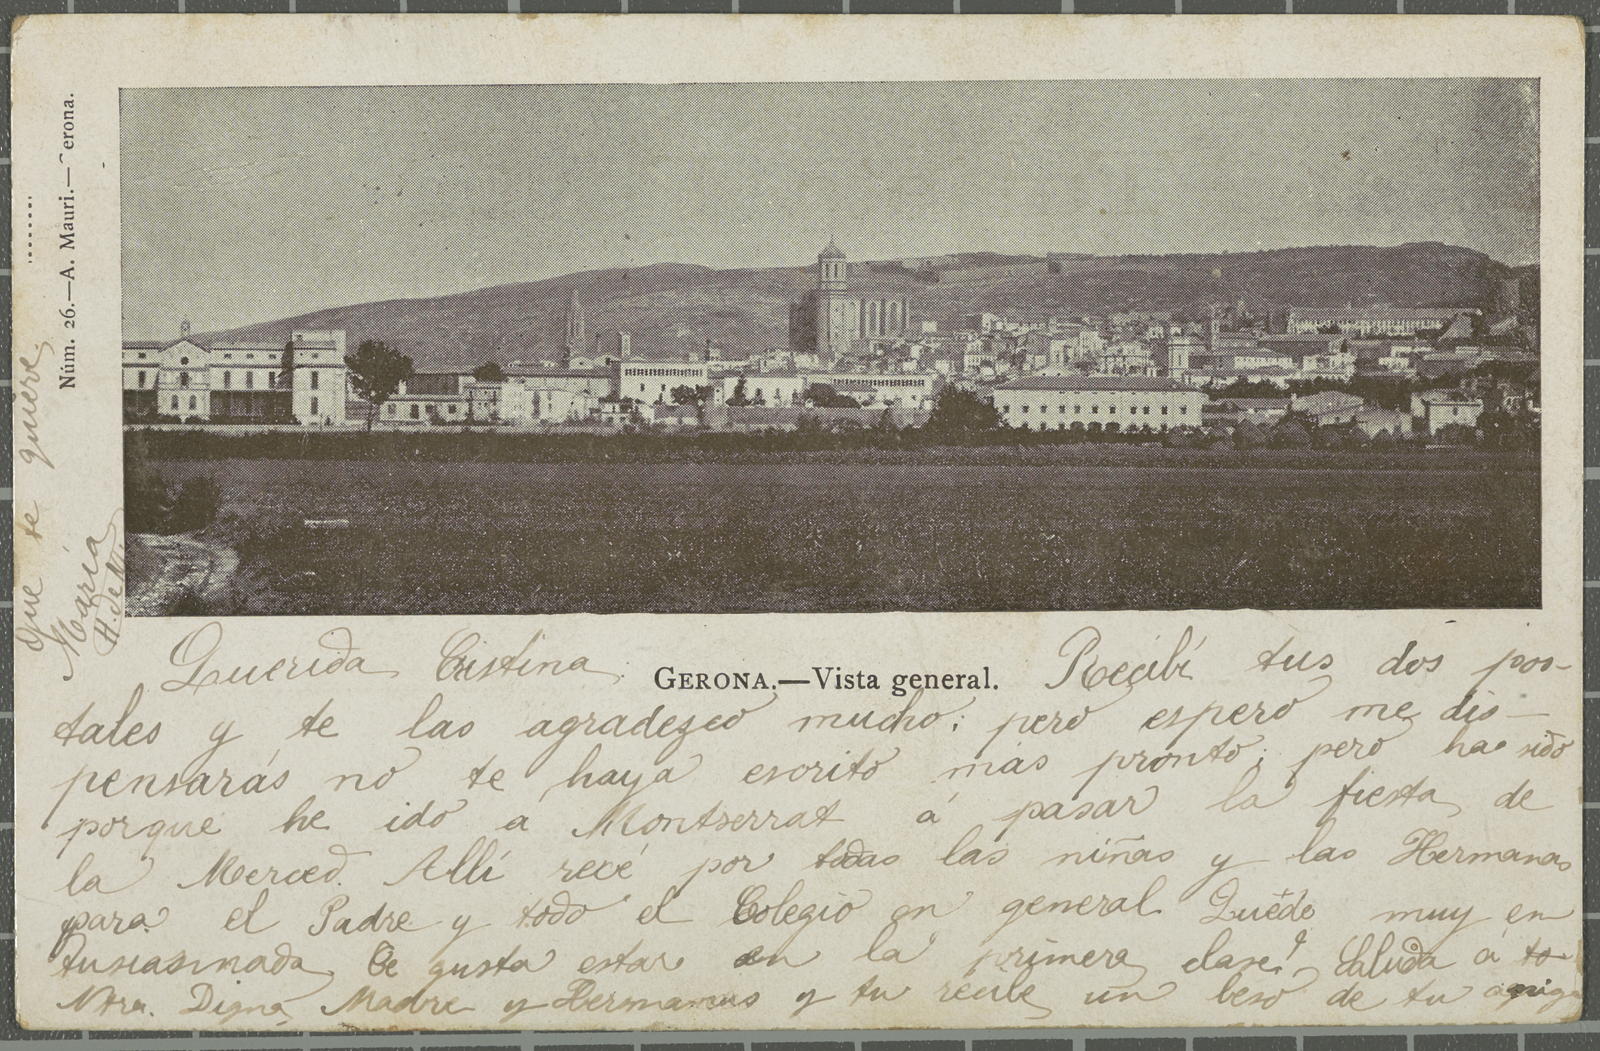 Núm. 26.—A. Mauri.—Gerona.
GERONA.—Vista general.
Querida Cristina Recibí tus dos pos-
tales y te las agradezco mucho; pero espero me dis-
pensarás no te haya escrito mas pronto; pero ha sido
porque he ido á Montserrat á pasar la fiesta de
la Merced. Allí recé por todas las niñas y las Hermanas
para el Padre y todo el Colegio en general. Quédo muy en
tusiasmada Te gusta estar en la primera clase? Saluda á to-
Ntra. Digna Madre y Hermanas y tu recibe un beso de tu amiga
que te quiere
María
H. de M.